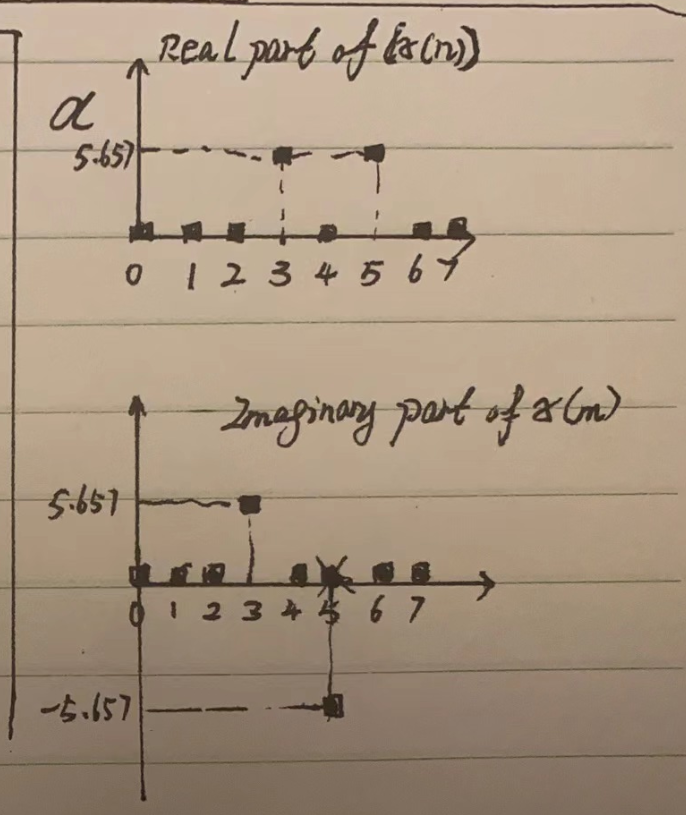 Real part of [x(n)]
α
5.657
0 1 2 3 4 5 6 7
Imaginary part of x(n)
5.657
0 1 2 3 4 5 6 7
-5.657